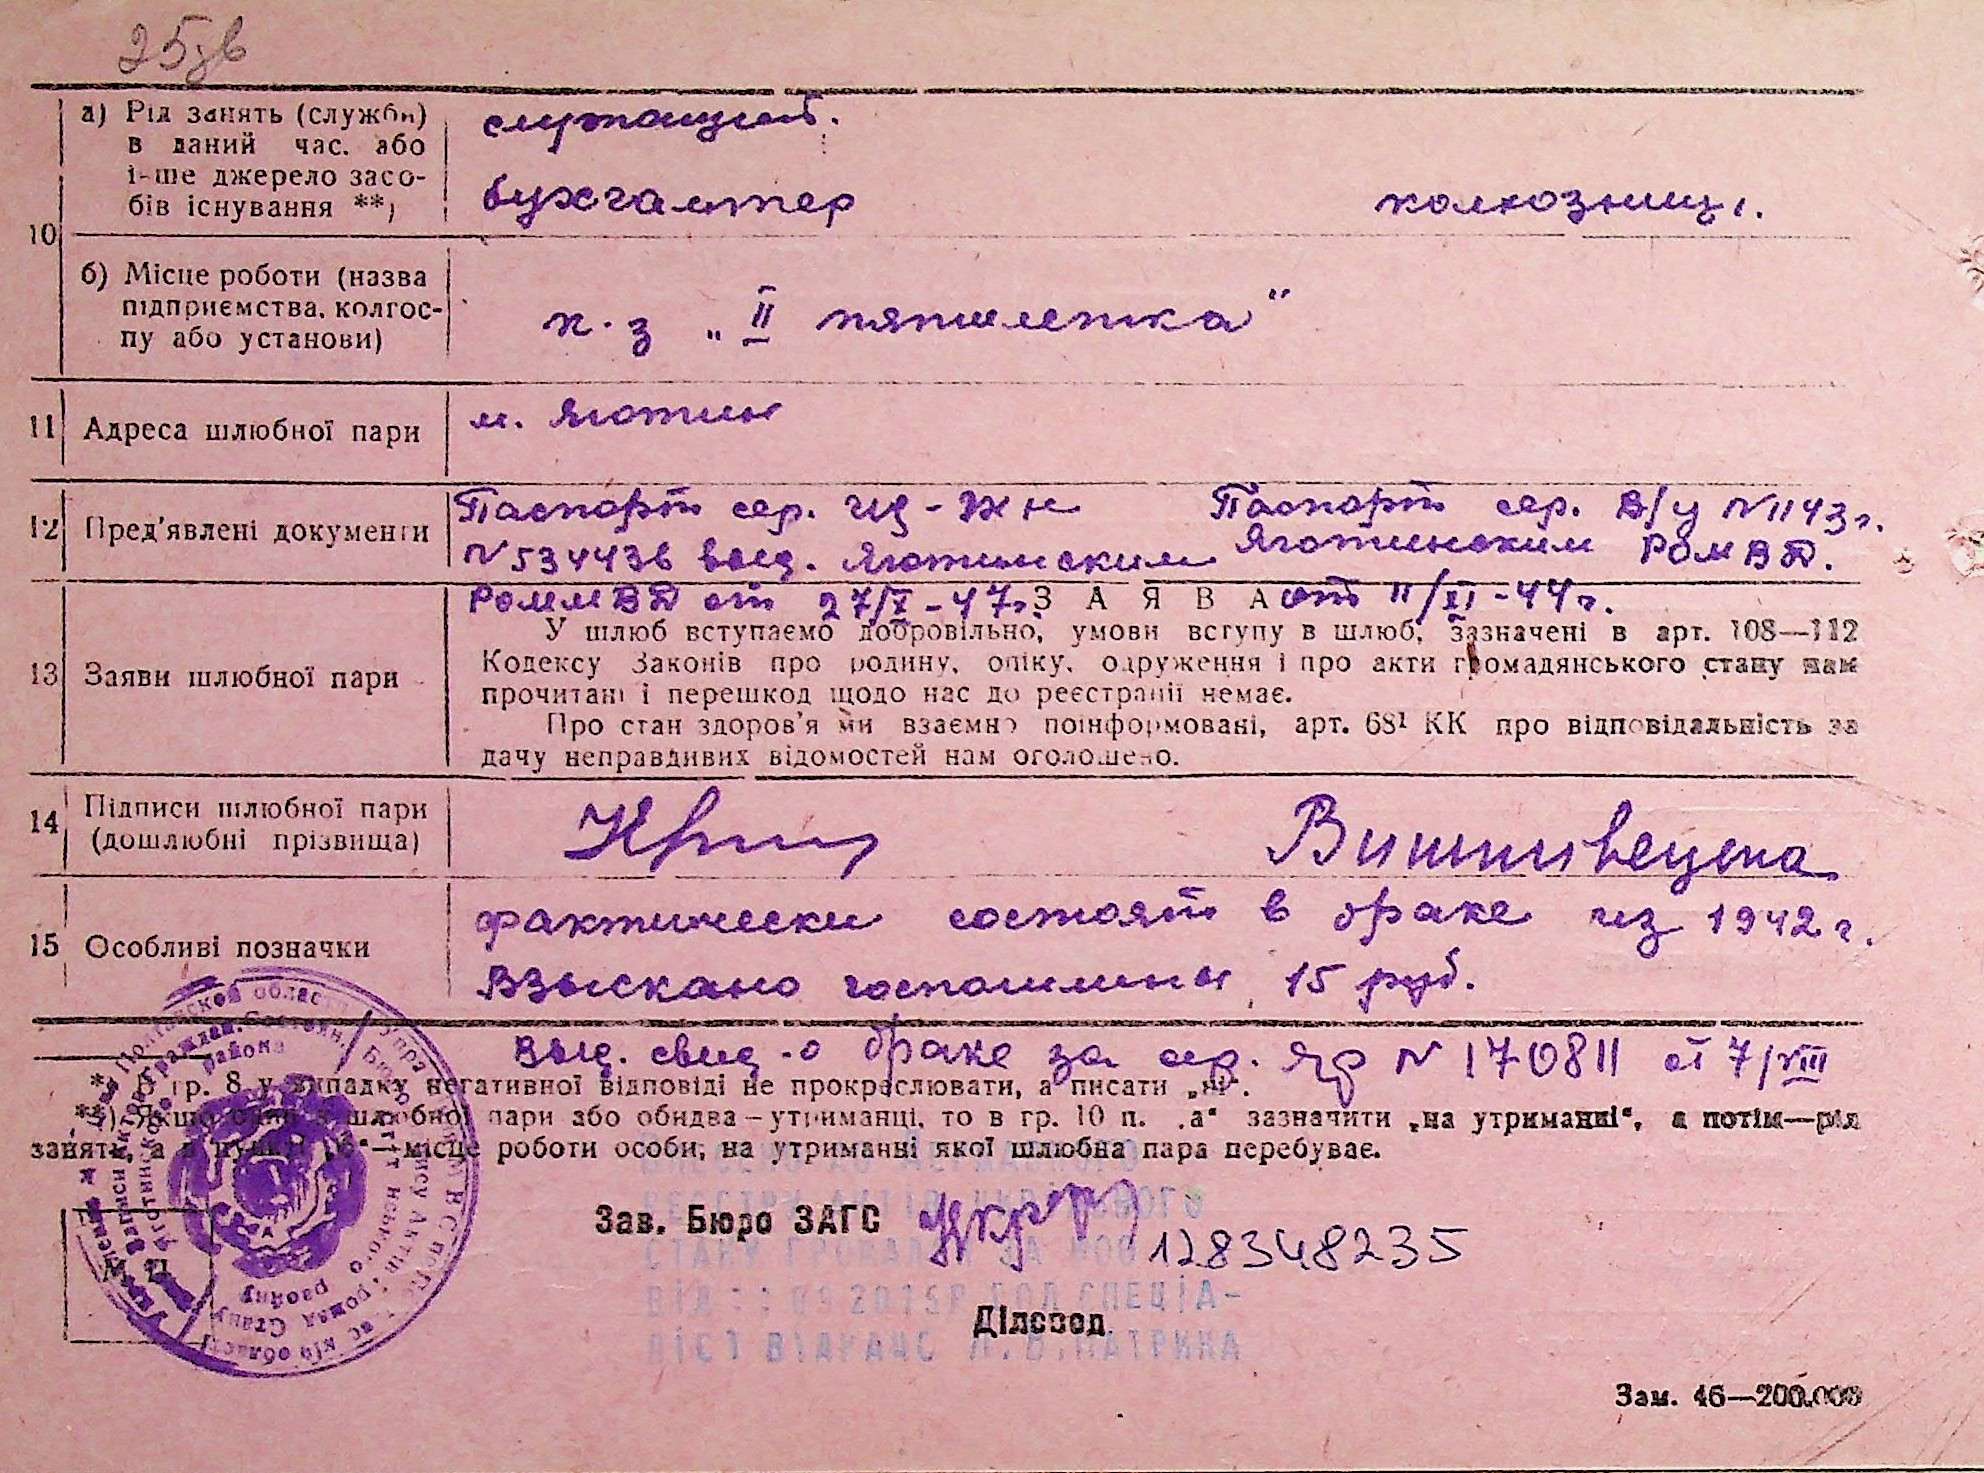 25зв
10
а) Рід занять (служби) в даний час. або інше джерело засобів існування **)
служащий.
бухгалтер колхозниц.
б) Місце роботи (назва підприємства, колгоспу або установи)
к-з „II пятилетка“
11 Адреса шлюбної пари
м. Яготин
12 Пред'явлені документи
Паспорт сер. ЧЦ-ЖН
№534436 выд. Яготинским
РОММВД от 27/X-47г.
Паспорт сер. В/у №1143г.
Яготинским РОМВД.
от 11/XI-44г.
13 Заяви шлюбної пари
ЗАЯВА
У шлюб вступаємо добровільно, умови вступу в шлюб, зазначені в арт. 108—112
Кодексу Законів про родину, опіку, одруження і про акти громадянського стану нам
прочитані і перешкод щодо нас до реєстрації немає.
Про стан здоров'я ми взаємно поінформовані, арт. 68¹ КК про відповідальність за
дачу неправдивих відомостей нам оголошено.
14 Підписи шлюбної пари
(дошлюбні прізвища)
15 Особливі позначки
фактически состоят в браке из 1942 г.
взыскано госпошлины 15 руб.
выд. свид-о браке за сер. ЯР №170811 от 7/VIII
*) В гр. 8 у випадку негативної відповіді не прокреслювати, а писати „ні“.
**) Якщо один з шлюбної пари або обидва—утриманці, то в гр. 10 п. „а“ зазначити „на утриманні“, а потім—рід
занять, а в пункті „б“—місце роботи особи, на утриманні якої шлюбна пара перебуває.
Зав. Бюро ЗАГС
128348235
Діловод
Зам. 46—200.000